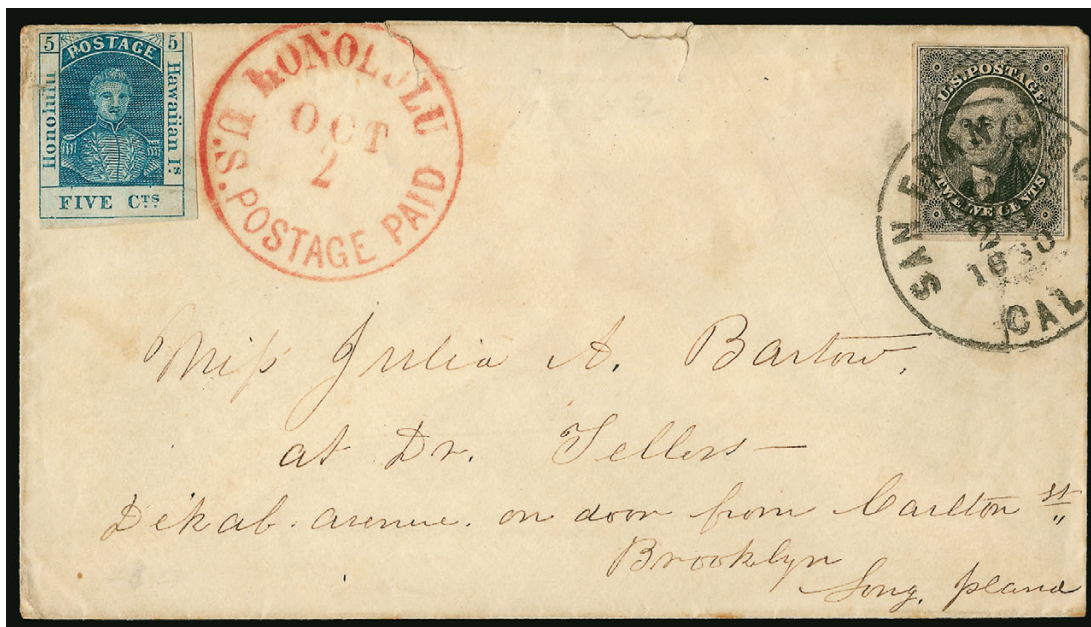 5 POSTAGE 5
Honolulu
Hawaiian Is.
FIVE Cts.
HONOLULU
OCT
2
U.S. POSTAGE PAID
U.S. POSTAGE
TWELVE CENTS
SAN FRANCISCO
1860
CAL
Miss Julia A. Bartow.
at Dr. Sellers —
Dekab. avenue. on door from Carlton st
Brooklyn
Long. Island